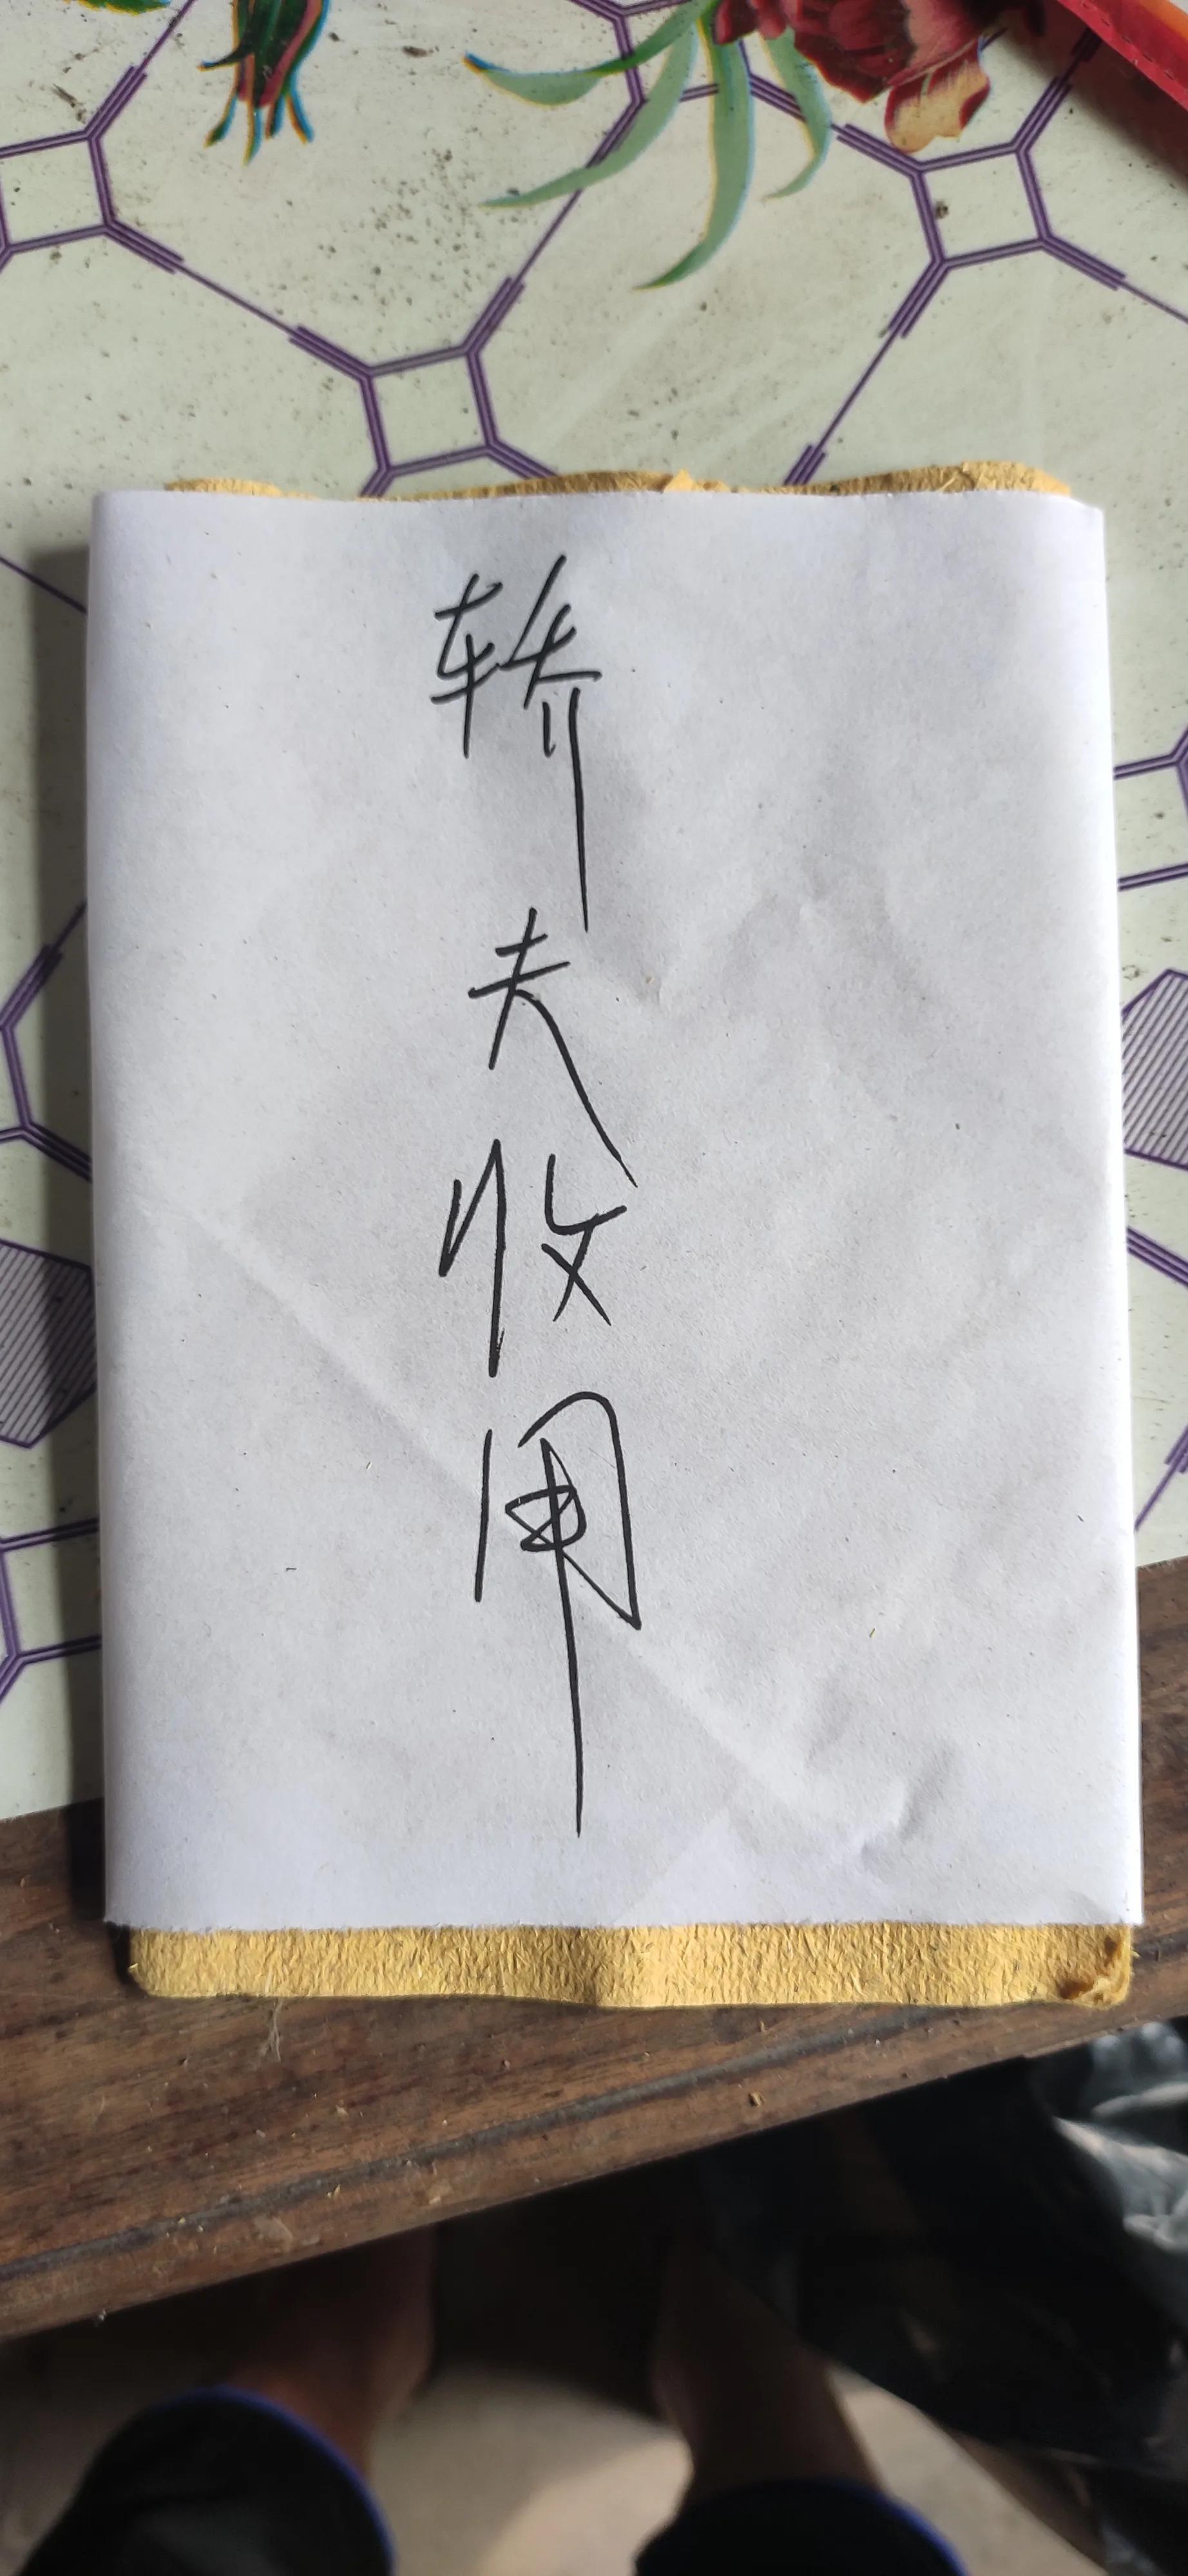 轿夫收用